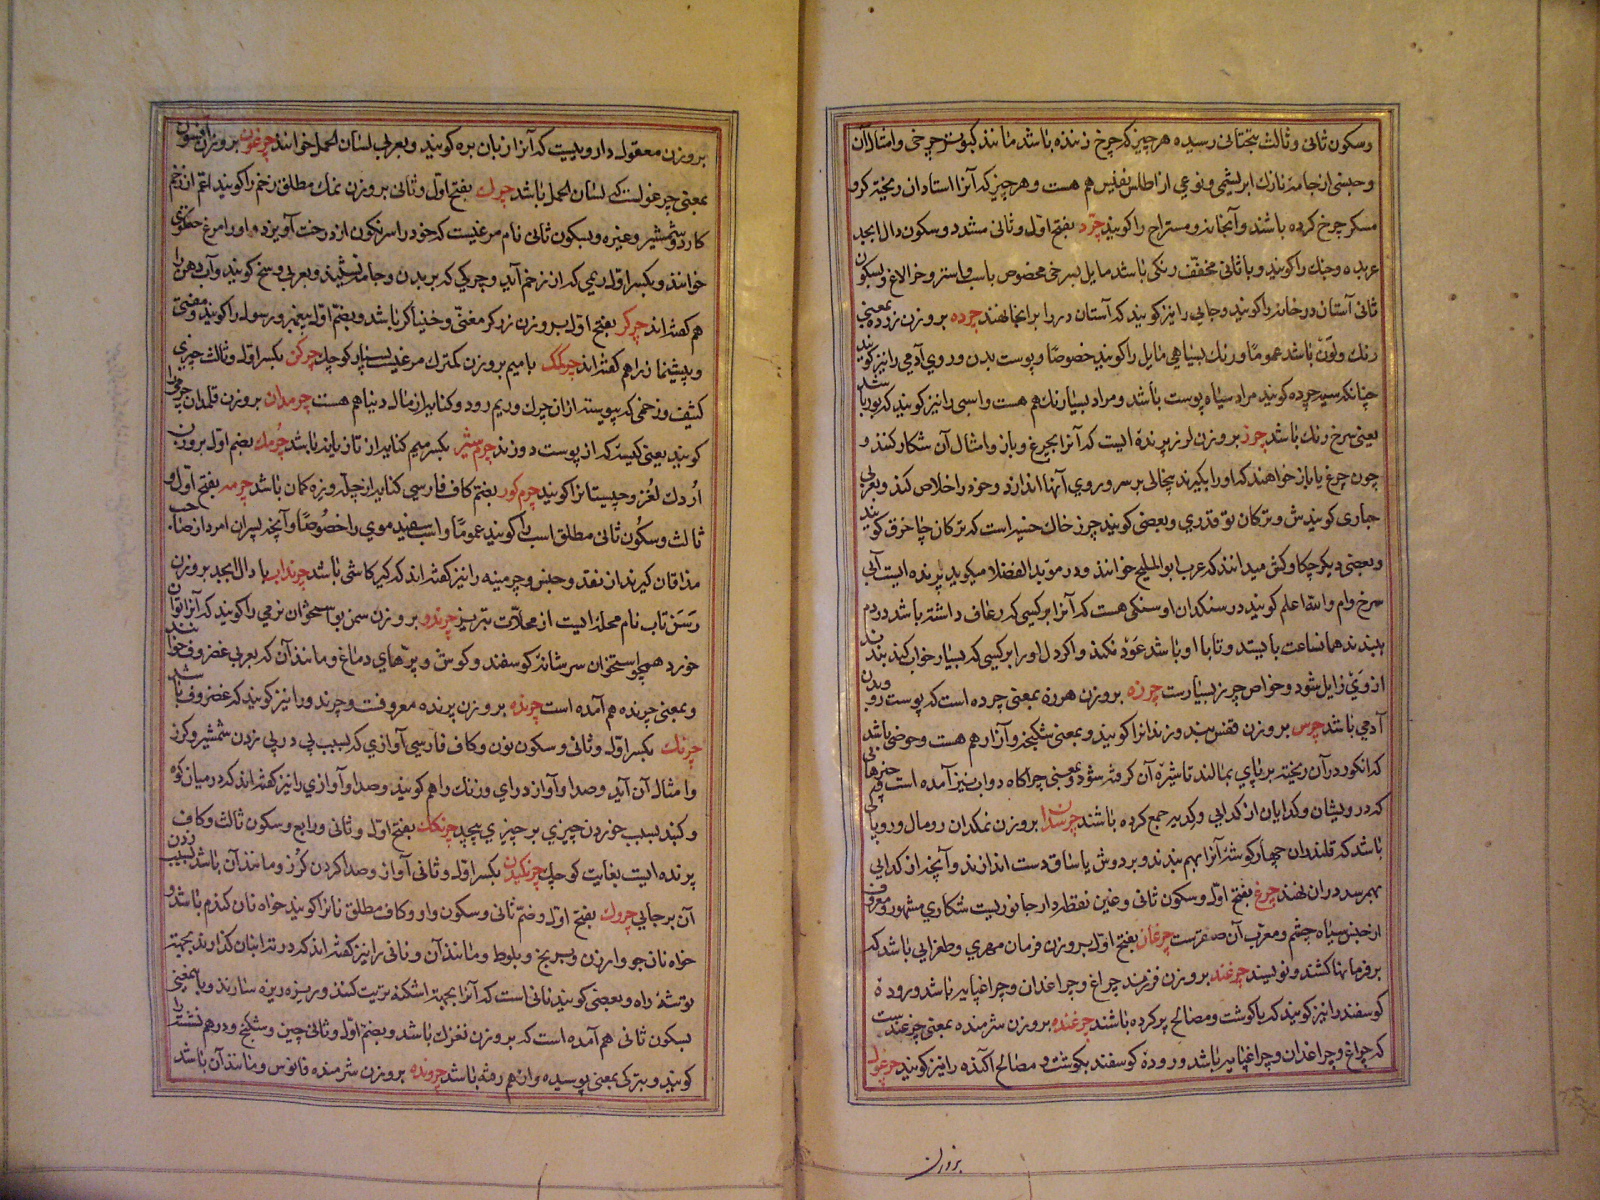 وسکون ثانی و ثالث بتحتانی رسیده هر چیز که چرخ زننده باشد مانند کبوتر چرخی و امثال آن
و جنسی از جامه نازک ابریشمی و نوعی از اطلس نفیس هم هست و هر چیز که آنرا استادان ریخته گر و
مسکر چرخ کرده باشند و آنجانه و مستراح را کویند چرد بفتح اول و ثانی مشدد و سکون دال ابجد
عربده و جنک را کویند و با ثانی مخفف رنکی باشد مایل بسرخی مخصوص باسب و استر و خر الاغ و بسکون
ثانی آستان در خانه را کویند و جایی را نیز کویند که آستان در را بر انجا نهند چرده بروزن زرده بمعنی
رنک و لون باشد عموما و رنک بسیاهی مایل را کویند خصوصا و پوست بدن و روی آدمی را نیز کویند
چنانکه سیه چرده کویند مراد سیاه پوست باشد و مراد بسیار نک هم هست و اسبی را نیز کویند که بور باشد
یعنی سرخ رنک باشد چرز بروزن لرز پرنده ایست که آنرا بچرغ و باز و امثال آن شکار کنند و
چون چرغ یا باز خواهند که او را بکیرند پیخالی بر سر و روی آنها اندازد و خود را خلاص کند و بعربی
حباری کویندش و ترکان توقدری و بعضی کویند چرز خاک خسپ است که ترکان چاخرق کویند
و بعضی دیکر چکاوکش میدانند که عرب ابو الملیح خوانند و در موید الفضلا میکوید پرنده ایست آبی
سرخ فام والله اعلم کویند در سنکدان او سنکی هست که آنرا بر کسی که رعاف داشته باشد در دم
ببندند همانساعت بایستد و تا با او باشد عود نکند و اکر دل او را بر کسی که بسیار خواب کند بندند
از وی زایل شود و خواص چرز بسیارست چرزه بروزن هرزه بمعنی چرده است که پوست روی و بدن
آدمی باشد چرس بروزن قفس بند و زندان را کویند و بمعنی شکنجه و آزار هم هست و حوضی باشد
که انکور در آن ریخته بر پای بمالند تا شیره آن کرفته شود و بمعنی چراکاه دواب نیز آمده است و چیزهایی
که درویشان و کدایان از کدایی و کدیه جمع کرده باشند چرسدان بروزن نمکدان رومال و روپاکی
باشد که قلندران چهار کوشه آنرا بهم بندند و بر دوش یا ساق دست اندازند و آنچه از کدایی
بهم رسد در ان نهند چرغ بفتح اول و سکون ثانی و غین نقطه دار جانوریست شکاری مشهور و معروف
از جنس سیاه چشم و معرب آن صقرست چرغان بفتح اول بروزن فرمان مهری و طغرایی باشد که
بر فرمانها کشند و نویسند چرغند بروزن فرزند چراغ و چراغدان و چراغپایه باشد و روده
کوسفند را نیز کویند که با کوشت و مصالح پر کرده باشند چرغنده بروزن شرمنده بمعنی چرغندست
که چراغ و چراغدان و چراغپایه باشد و روده کوسفند بکوشت و مصالح آکنده را نیز کویند چرغول
بروزن
بروزن معقول دارویست که آنرا زبان بره کویند و بعربی لسان الحمل خوانند چرغون بروزن افسون
بمعنی چرغولست که لسان الحمل باشد چرک بفتح اول و ثانی بروزن نمک مطلق زخم را کویند اعم از زخم
کارد و شمشیر و غیره و بسکون ثانی نام مرغیست که خود را سرنکون از درخت آویزد و او را مرغ حقکوی
خوانند و بکسر اول ریمی که از زخم آید و چرکی که بر بدن و جامه نشیند و بعربی وسخ کویند و آب دهن را
هم کفته اند چرکر بفتح اول بروزن زرکر مغنی و خنیاکر باشد و بضم اول پیغمبر و رسول را کویند و مفتی
و پیشنماز را هم کفته اند چرکمک با میم بروزن کمترک مرغیست بسیار کوچک چرکن بکسر اول و ثالث چیزی
کثیف و زخمی که پیوسته از ان چرک و ریم رود و کنایه از مال دنیا هم هست چرمدان بروزن قلمدان چرمی را
کویند یعنی کیسه که از پوست دوزند چرم شیر بکسر میم کنایه از تازیانه باشد چرمک بضم اول بروزن
اردک لغز و چیستان را کویند چرم کور بضم کاف فارسی کنایه از چله و زه کمان باشد چرمه بفتح اول و
ثالث و سکون ثانی مطلق اسب را کویند عموما و اسب سفید موی را خصوصا و آنچه پسران امرد از صاحب
مذاقان کیرند از نقد و جنس و چرمینه را نیز کفته اند که کیر کاشی باشد چرنداب با دال ابجد بروزن
رسن تاب نام محله ایست از محلات تبریز چرندو بروزن سمن بو استخوان نرمی را کویند که آنرا توان
خورد همچو استخوان سر شانه کوسفند و کوش و پره های دماغ و مانند آن که بعربی غضروف خوانند
و بمعنی چرنده هم آمده است چرنده بروزن پرنده معروفست و چرندو را نیز کویند که غضروف باشد
چرنک بکسر اول و ثانی و سکون نون و کاف فارسی آوازی که بسبب پی در پی زدن شمشیر و کرز
و امثال آن آید و صدا و آواز درای و زنک را هم کویند و صدا و آوازی را نیز کفته اند که در میان کوه
و کنبد بسبب خوردن چیزی بر چیزی پیچد چرنکک بفتح اول و ثانی و رابع و سکون ثالث و کاف
پرنده ایست بغایت کوچک چرنکیدن بکسر اول و ثانی آواز و صدا کردن کرز و مانند آن باشد بسبب زدن
آن بر جایی چروک بفتح اول و ضم ثانی و سکون واو و کاف مطلق نان را کویند خواه نان کندم باشد و
خواه نان جو و ارزن و برنج و بلوط و مانند آن و نانی را نیز کفته اند که درته انبان کذارند بجهته
توشه راه و بعضی کویند نانی است که آنرا بجهته اشکنه تریت کنند و ریزه ریزه سازند و بمعنی
بسکون ثانی هم آمده است که بروزن نغزک باشد و بضم اول و ثانی چین و شکنج و درهم نشسته را
کویند و بترکی بمعنی پوسیده و از هم رفته باشد چرونده بروزن شرمنده فانوس و مانند آن باشد